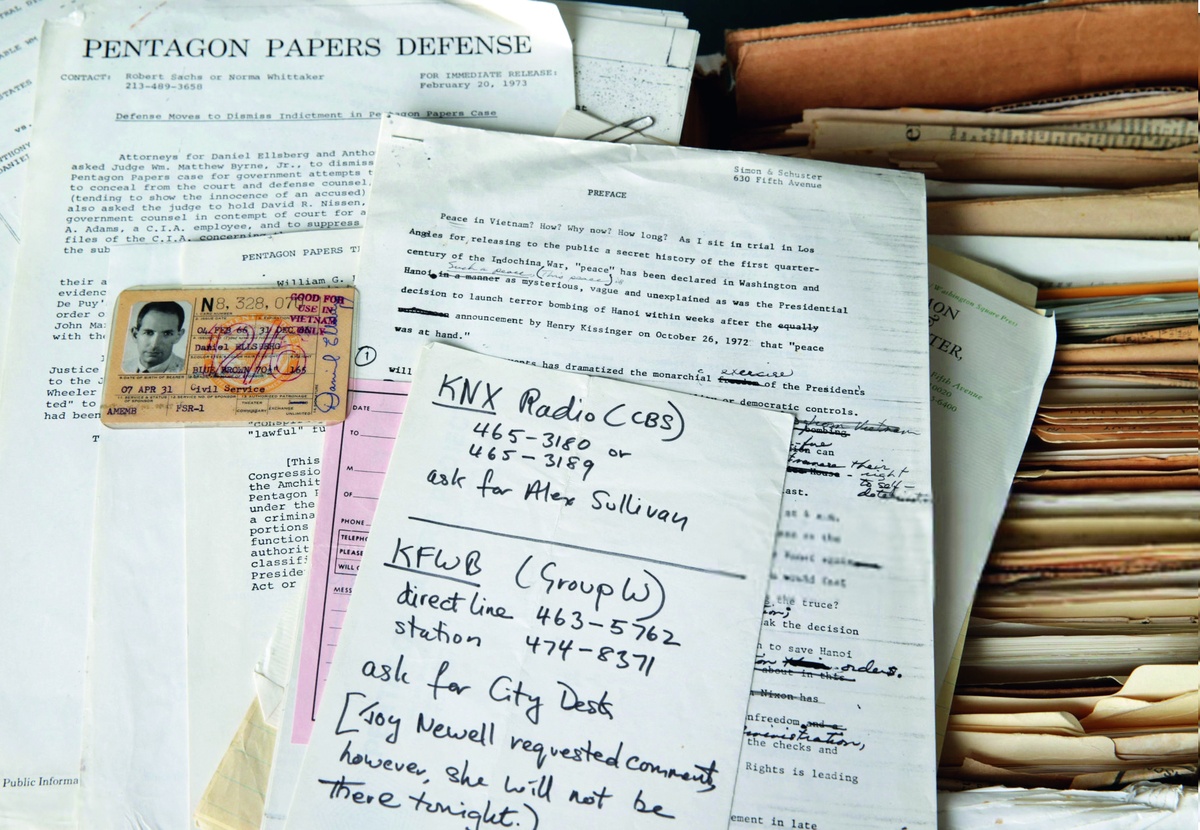 PENTAGON PAPERS DEFENSE
CONTACT: Robert Sachs or Norma Whittaker
213-489-3658
FOR IMMEDIATE RELEASE:
February 20, 1973
Defense Moves to Dismiss Indictment in Pentagon Papers Case
Attorneys for Daniel Ellsberg and Antho
asked Judge Wm. Matthew Byrne, Jr., to dismiss
Pentagon Papers case for government attempts t
to conceal from the court and defense counsel,
(tending to show the innocence of an accused)
also asked the judge to hold David R. Nissen,
government counsel in contempt of court for a
A. Adams, a C.I.A. employee, and to suppress
files of the C.I.A. concerning
the sub
their a
evidenc
De Puy'
order o
John Ma
with the
Justice
to the J
Wheeler
ted" to
had been
T
Public Informa
PENTAGON PAPERS T
William G.
"conspi
"lawful" fu
[This
Congressio
the Amchit
Pentagon P
under the
a crimina
portions
function
authorit
classifi
Preside
Act or
N8,328,07
GOOD FOR
USE IN
VIETNAM
ONLY
04 FEB 66 31 DEC
Daniel ELLSBERG
BLUE BROWN 70" 165
07 APR 31 Civil Service
AMEMB FSR-1
Daniel Ells
Simon & Schuster
630 Fifth Avenue
PREFACE
Peace in Vietnam? How? Why now? How long? As I sit in trial in Los
Angles for releasing to the public a secret history of the first quarter-
century of the Indochina War, "peace" has been declared in Washington and
Such a peace (This peace) is
Hanoi, in a manner as mysterious, vague and unexplained as was the Presidential
decision to launch terror bombing of Hanoi within weeks after the equally
announcement by Henry Kissinger on October 26, 1972 that "peace
was at hand."
1
ments has dramatized the monarchial exercise of the President's
will
or democratic controls.
from Vietnam
bombing
can
House
their right
to self-
ast.
would fast
the truce?
ak the decision
to save Hanoi
orders.
about in this
Nixon has
nfreedom and a
ministration,
the checks and
Rights is leading
ement in late
DATE
TO
M
OF
PHONE
TELEPH
PLEASE
WILL C
MESS
KNX Radio (CBS)
465-3180 or
465-3189
ask for Alex Sullivan
KFWB (Group W)
direct line 463-5762
station 474-8371
ask for City Desk
[Joy Newell requested comment,
however, she will not be
there tonight.)
Washington Square Press
MON
&
TER,
Fifth Avenue
0020
-6400